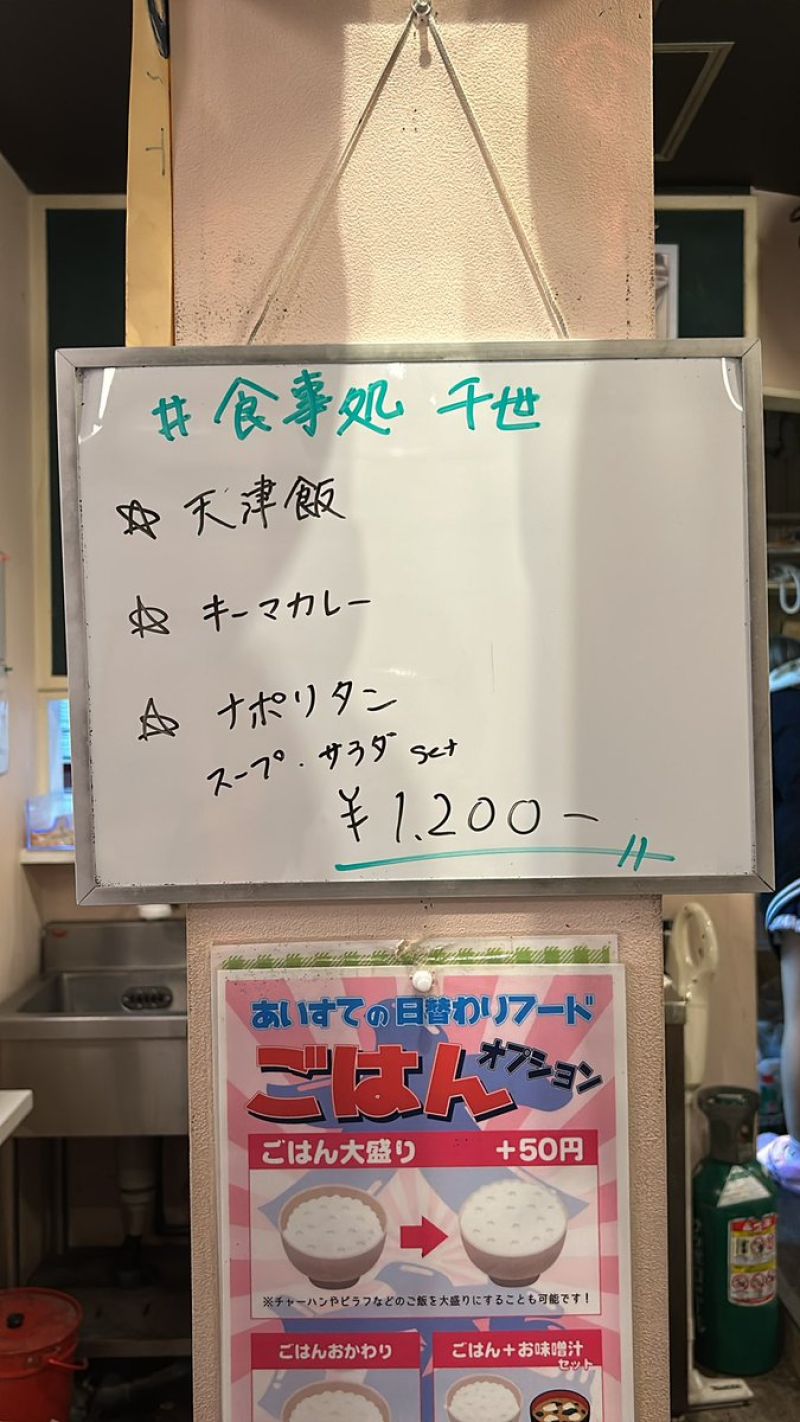 #食事処 千世
☆ 天津飯
☆ キーマカレー
☆ ナポリタン
スープ・サラダ set
¥1.200-
あいすての日替わりフード
ごはん オプション
ごはん大盛り +50円
※チャーハンやピラフなどのご飯を大盛りにすることも可能です！
ごはんおかわり
ごはん+お味噌汁
セット